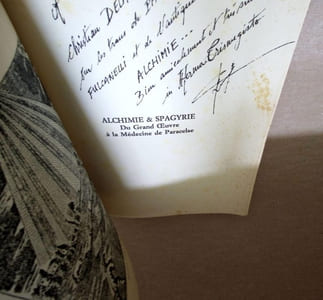 Christian
Sur les traces de
FULCANELLI et de l'antique
ALCHIMIE...
Bien amicalement et très
in Herma
ALCHIMIE & SPAGYRIE
Du Grand Œuvre
à la Médecine de Paracelse